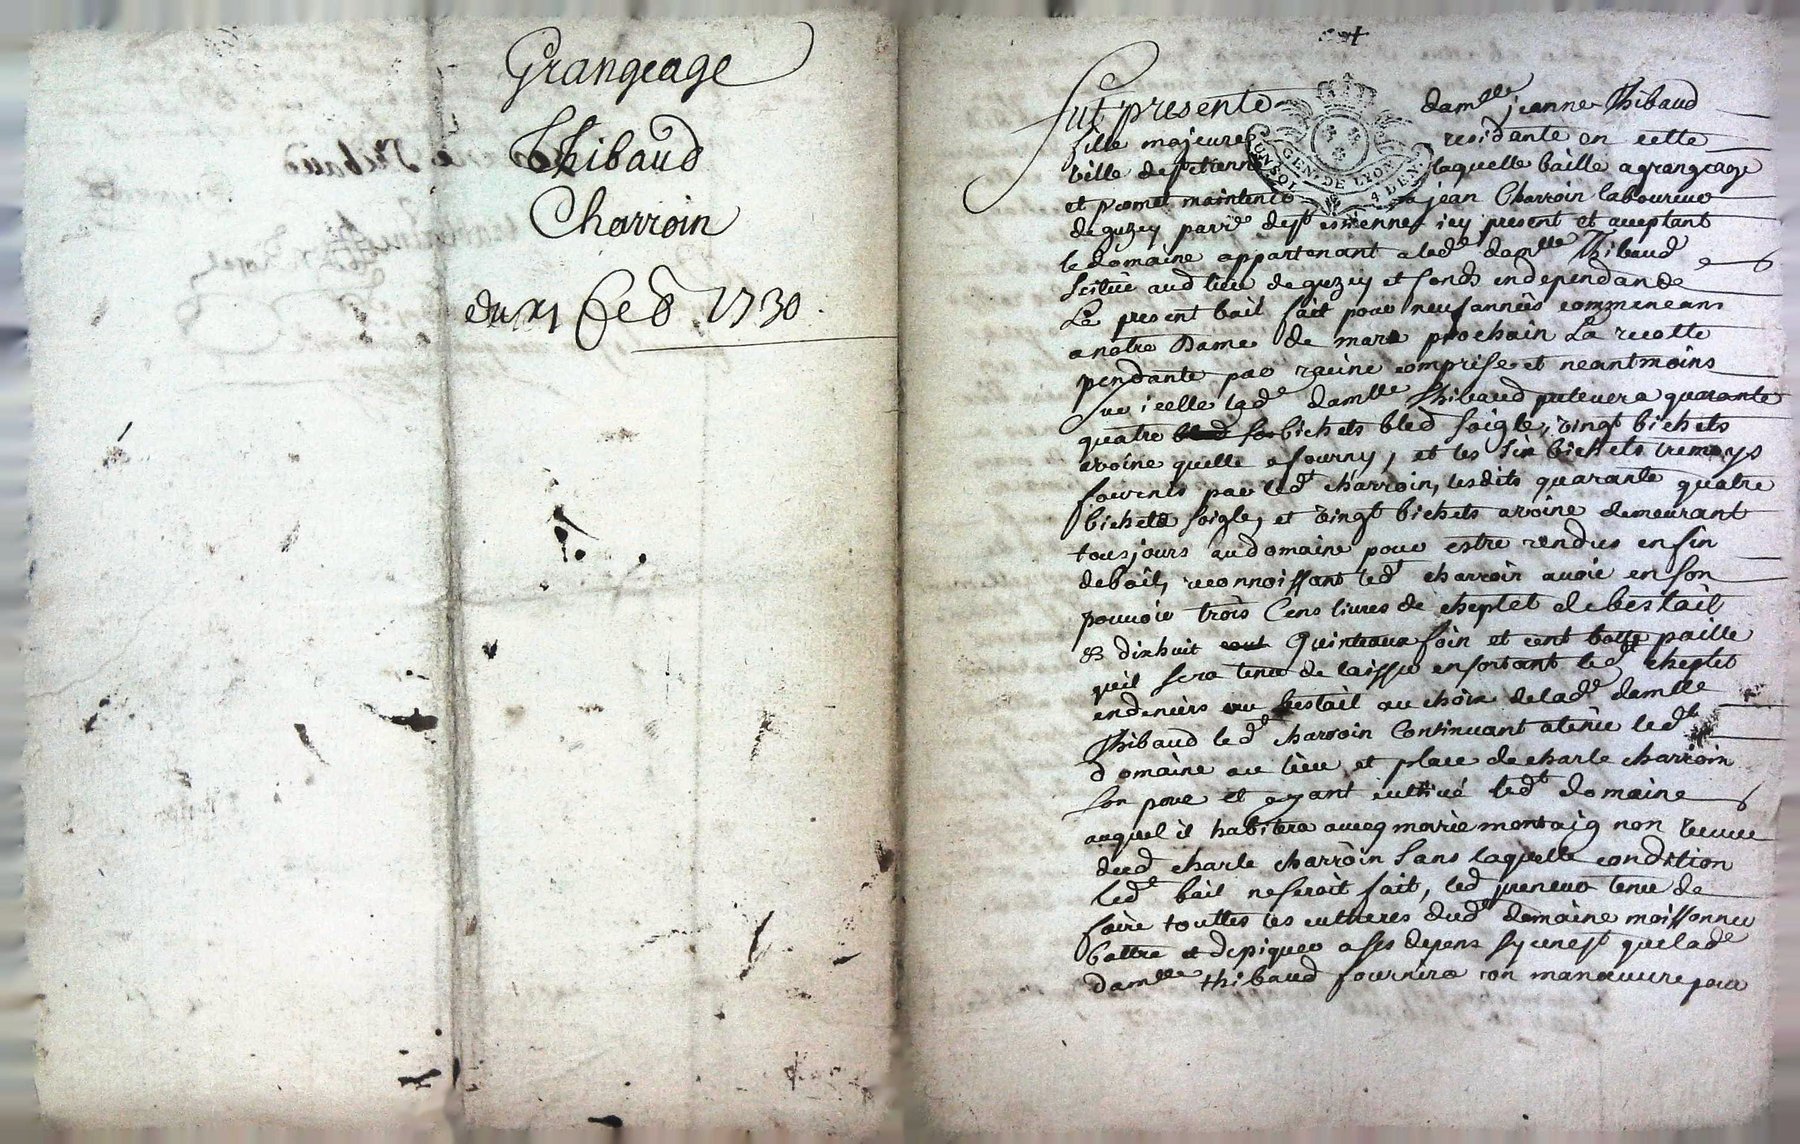 Grangeage
Thibaud
Charroin
du 21 feb 1730.
fut presente damlle jeanne Thibaud
fille majeure residante en cette
ville de St etienne laquelle baille a grangeage
et promet maintenir a jean Charroin laboureur
de guzey parre de st estienne icy present et acceptant
le domaine appartenant a lade damlle Thibaud
scitué aud lieu de guzey et fonds independands
Le present bail fait pour neuf années commencans
a notre Dame de mars prochain La recolte
pendante par racine comprise et neantmoins
sur icelle lade damlle Thibaud prelevera quarante
quatre bichets bled soigle, vingt bichets
avoine quelle a fourny, et les six bichets tremoys
fournis par ledt charroin, lesdits quarante quatre
bichets soigle, et vingt bichets avoine demeurant
tousjours au domaine pour estre rendus en fin
de bail, reconnoissant ledt charroin avoir en son
pouvoir trois Cens livres de cheptel de bestail
et dixhuit Quinteaux foin et cent botte paille
quil sera tenu de laisser en sortant ledt cheptel
en deniers ou bestail au choix de lade damlle
Thibaud ledt charroin Continuant a tenir ledt
domaine au lieu et place de charle charroin
son pere et ayant cultivé ledt domaine
auquel il habitera avecq marie montaig non veuve
dud charle charroin sans laquelle condition
ledt bail ne seroit fait, led preneur tenu de
faire touttes les cultures dudt domaine moissonner
battre et depiquer a ses depens sy ce nest que lade
damlle thibaud fournira un manœuvre pour
UN SOL GEN. DE LYON 4 DEN.